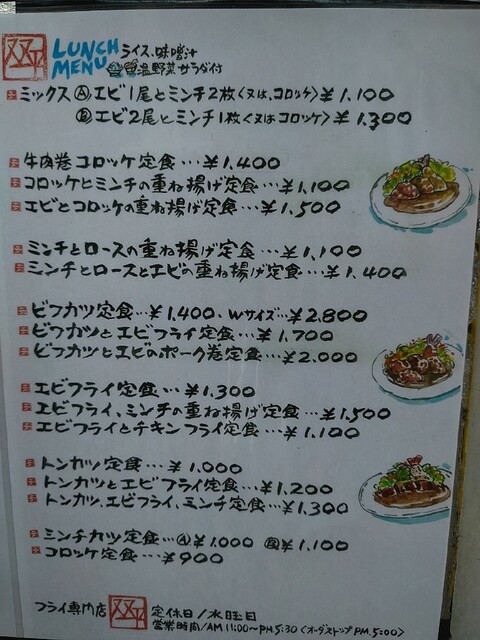 LUNCH MENU ライス、味噌汁
温野菜サラダ付
ミックス Ⓐエビ1尾とミンチ2枚〈又は、コロッケ〉¥1,100
Ⓑエビ2尾とミンチ1枚〈又はコロッケ〉¥1,300
牛肉巻コロッケ定食…¥1,400
コロッケとミンチの重ね揚げ定食…¥1,100
エビとコロッケの重ね揚げ定食…¥1,500
ミンチとロースの重ね揚げ定食…¥1,100
ミンチとロースとエビの重ね揚げ定食…¥1,400
ビフカツ定食…¥1,400、Wサイズ…¥2,800
ビフカツとエビフライ定食…¥1,700
ビフカツとエビのポーク巻定食…¥2,000
エビフライ定食…¥1,300
エビフライ、ミンチの重ね揚げ定食…¥1,500
エビフライとチキンフライ定食…¥1,100
トンカツ定食…¥1,000
トンカツとエビフライ定食…¥1,200
トンカツ、エビフライ、ミンチ定食…¥1,300
ミンチカツ定食…Ⓐ¥1,000 Ⓑ¥1,100
コロッケ定食…¥900
フライ専門店 定休日/水曜日
営業時間/AM11:00〜PM5:30〈オーダーストップPM5:00〉